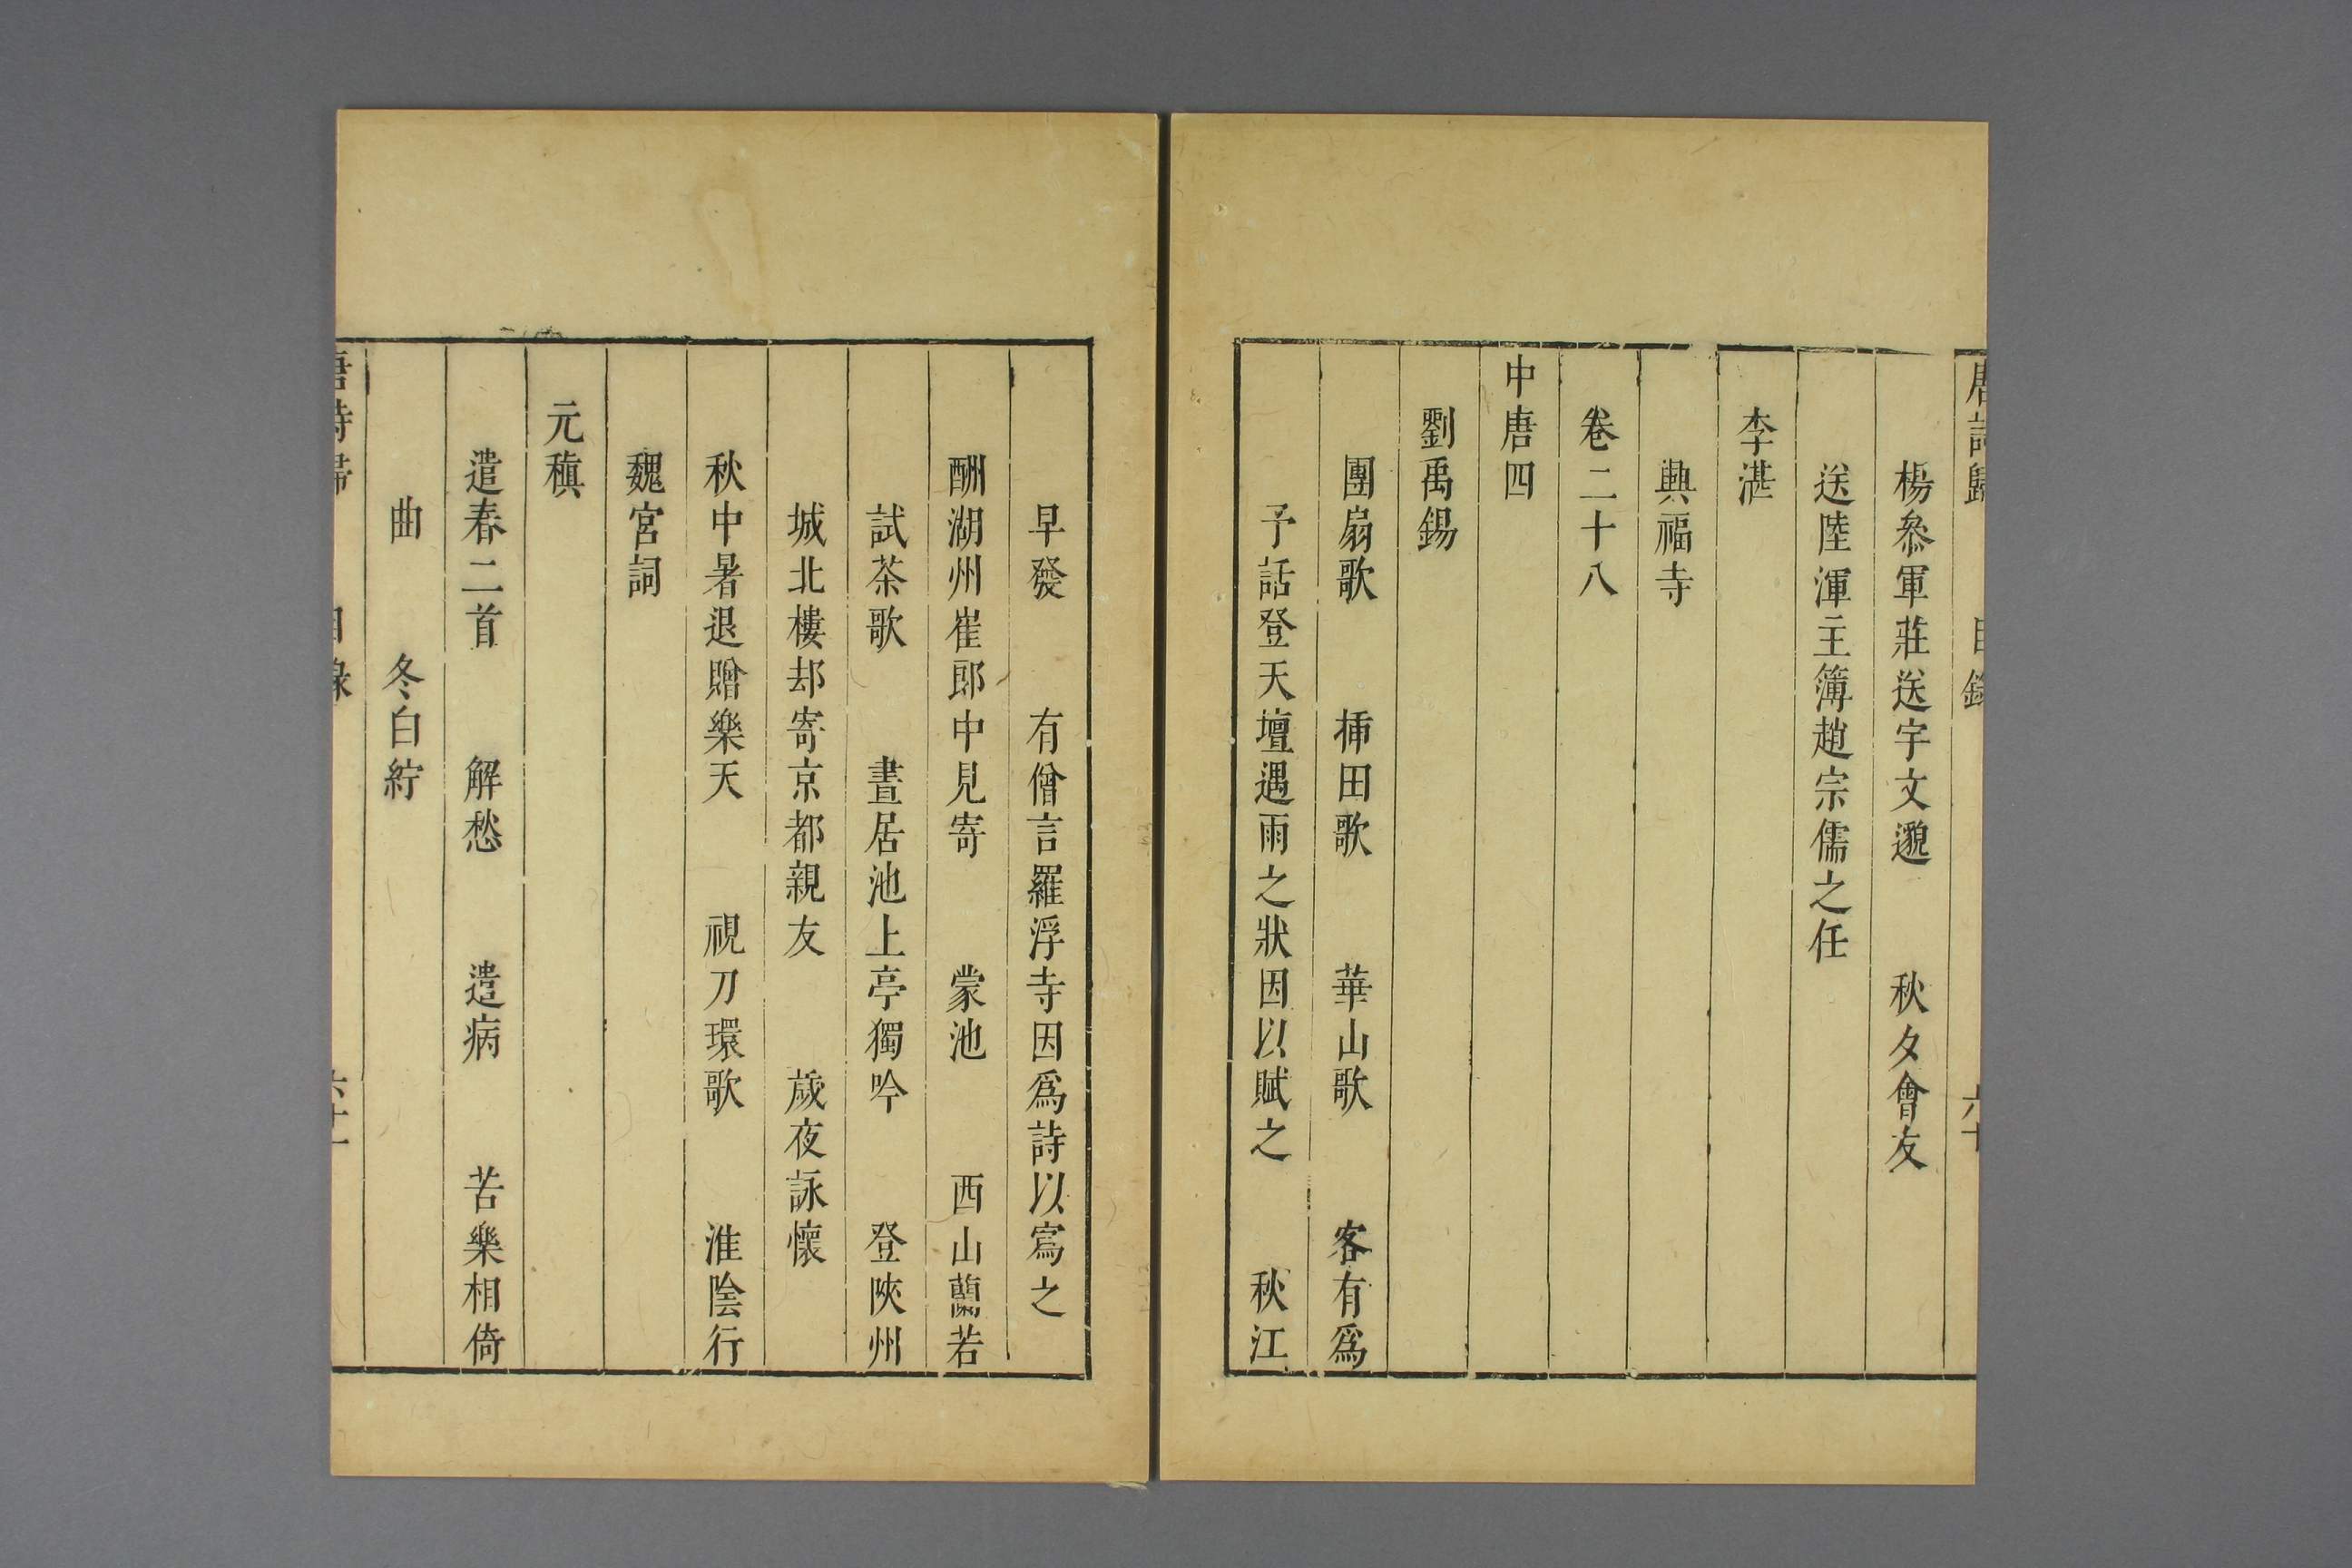 唐詩歸 目錄 六十
楊叅軍莊送宇文邈 秋夕會友
送陸渾主簿趙宗儒之任
李湛
興福寺
卷二十八
中唐四
劉禹錫
團扇歌 揷田歌 華山歌 客有爲
予話登天壇遇雨之狀因以賦之 秋江
早發 有僧言羅浮寺因爲詩以寫之
酬湖州崔郎中見寄 蒙池 西山蘭若
試茶歌 晝居池上亭獨吟 登陝州
城北樓却寄京都親友 歲夜詠懷
秋中暑退贈樂天 視刀環歌 淮陰行
魏宮詞
元稹
遣春二首 解愁 遣病 苦樂相倚
曲 冬白紵
唐詩歸 目錄 六十一